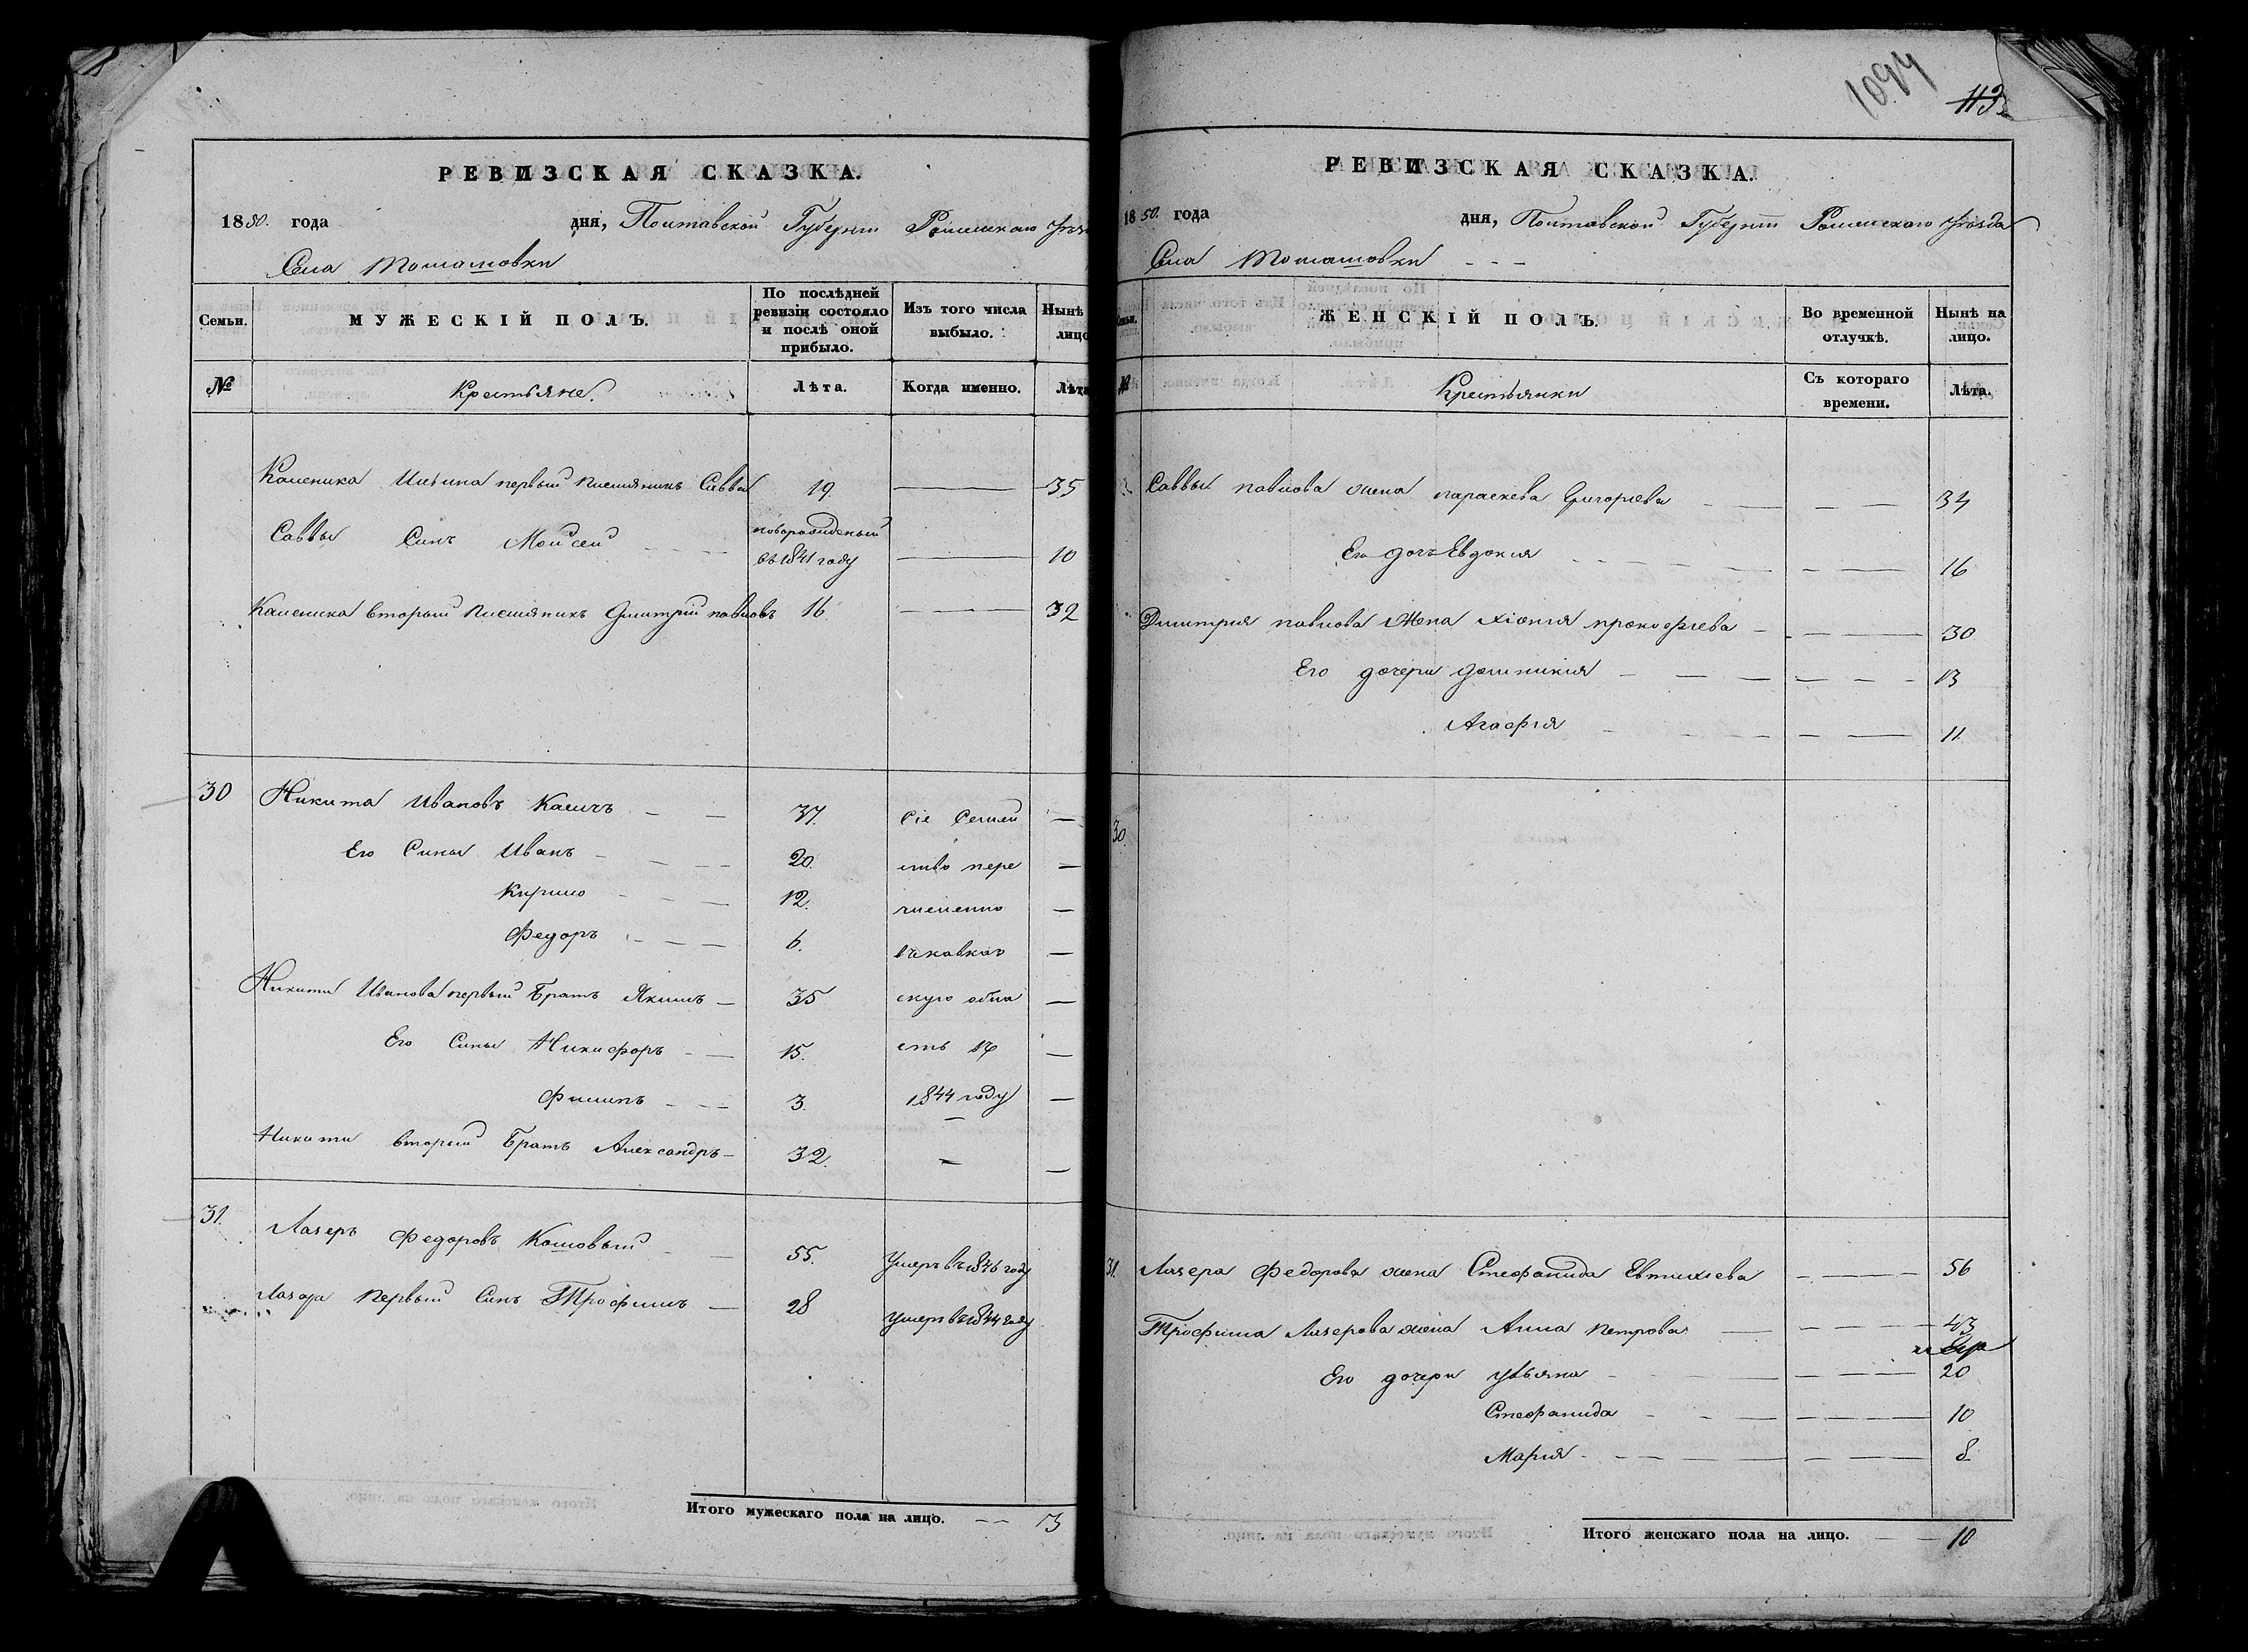 РЕВИЗСКАЯ СКАЗКА.
1850. года дня, Полтавской Губерніи Роменского
Села Томашовки
Семьи. МУЖЕСКІЙ ПОЛЪ. По послѣдней ревизіи состояло и послѣ оной прибыло. Изъ того числа выбыло. Нынѣ лицо
№ Крестьяне. Лѣта. Когда именно. Лѣта
Каленика Ильина первый племяникъ Савва 19. — 35
Саввы Синъ Мойсей новорожденый въ 1841 году — 10
Каленика вторый племяникъ Дмитрій павловъ 16 — 32
30 Никита Ивановъ Калычъ — 37. Сіе Семей —
Его Сины Иванъ — 20. ство пере —
Кирило — 12. численно —
Федоръ — 6. въ кавказ —
Никиты Иванова первый Братъ Якимъ — 35 скую обла —
Его Сины Никифоръ — 15. сть въ —
Филипъ — 3. 1844 году —
Никиты вторый Братъ Александръ — 32. — —
31. Лазеръ Федоровъ Кошовый — 55. Умеръ въ 1846 году
Лазера Первый Синъ Трофимъ — 28 умеръ въ 1844 году
Итого мужескаго пола на лицо. — 3
1094
113
РЕВИЗСКАЯ СКАЗКА.
1850. года дня, Полтавской Губерніи Роменского уѣзда
Села Томашовки — — —
Семьи. ЖЕНСКІЙ ПОЛЪ. Во временной отлучкѣ. Нынѣ на лицо.
№ Крестьянки Съ котораго времени. Лѣта.
Саввы павлова жена параскева Григорьева — — 34
Его дочь Евдокия — — 16
Дмитрия павлова Жена Хіония прокофиева — — 30
Его дочери Домникия — — 13
Агафия — — 11.
30.
31. Лазера Федорова жена Стефанида Евтихиева — 56
Трофима Лазерова жена Анна петрова — — 43
Его дочери Ульяна — — 20
Стефанида — — 10
Мария — — 8
Итого женскаго пола на лицо. — 10